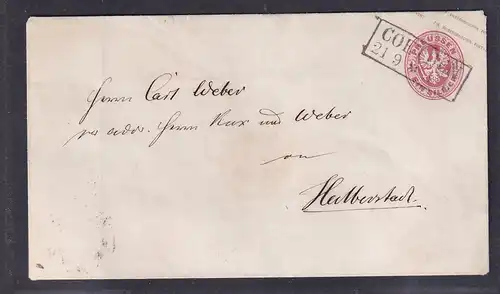 PREUSSEN
21 9
Herrn Carl Weber
pr addr. Herrn Rax und Weber
in
Halberstadt.